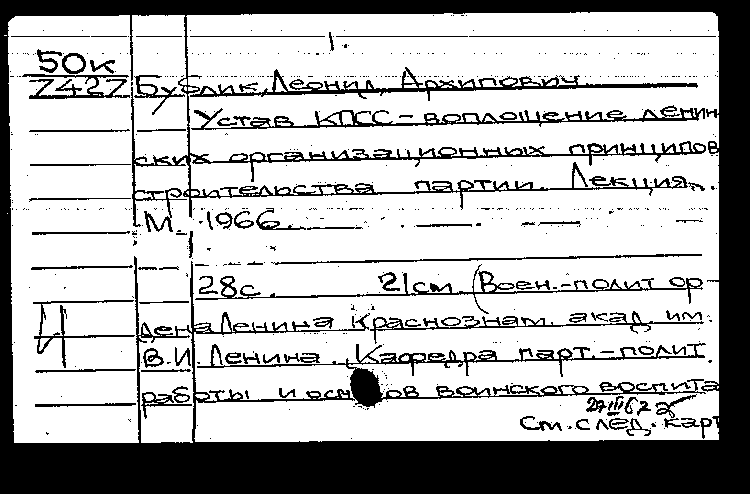 1.
50к
7427 Бублик, Леонид Архипович
Устав КПСС - воплощение ленин
ских организационных принципов
строительства партии. Лекция.
М. 1966.
28с. 21см. (Воен.-полит ор-
дена Ленина Краснознам. акад. им.
Ч
В.И. Ленина. Кафедра парт.-полит.
работы и основ воинского воспита
См. след. карт